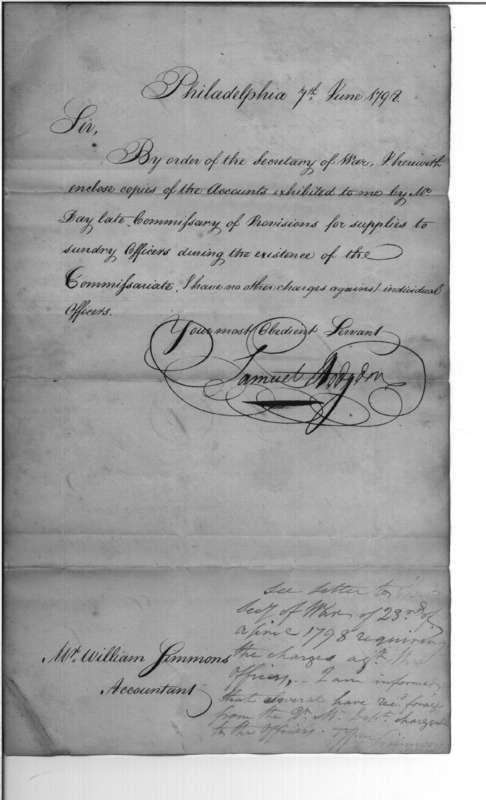 Philadelphia 7th June 1798.
Sir,
By order of the Secretary of War, I herewith
enclose copies of the Accounts exhibited to me by Mr
Day late Commissary of Provisions for supplies to
sundry Officers during the existence of the
Commissariate. I have no other charges against individual
Officers.
Your most Obedient Servant
Samuel Hodgdon
Mr. William Simmons
Accountant
see letter to
Secy of War of 23rd of
april 1798 requiring
the charges agt. the
officers. I am informed
that several have recd. forage
from the Qr. Mr. Dept. chargeable
to the officers. Wm Simmons